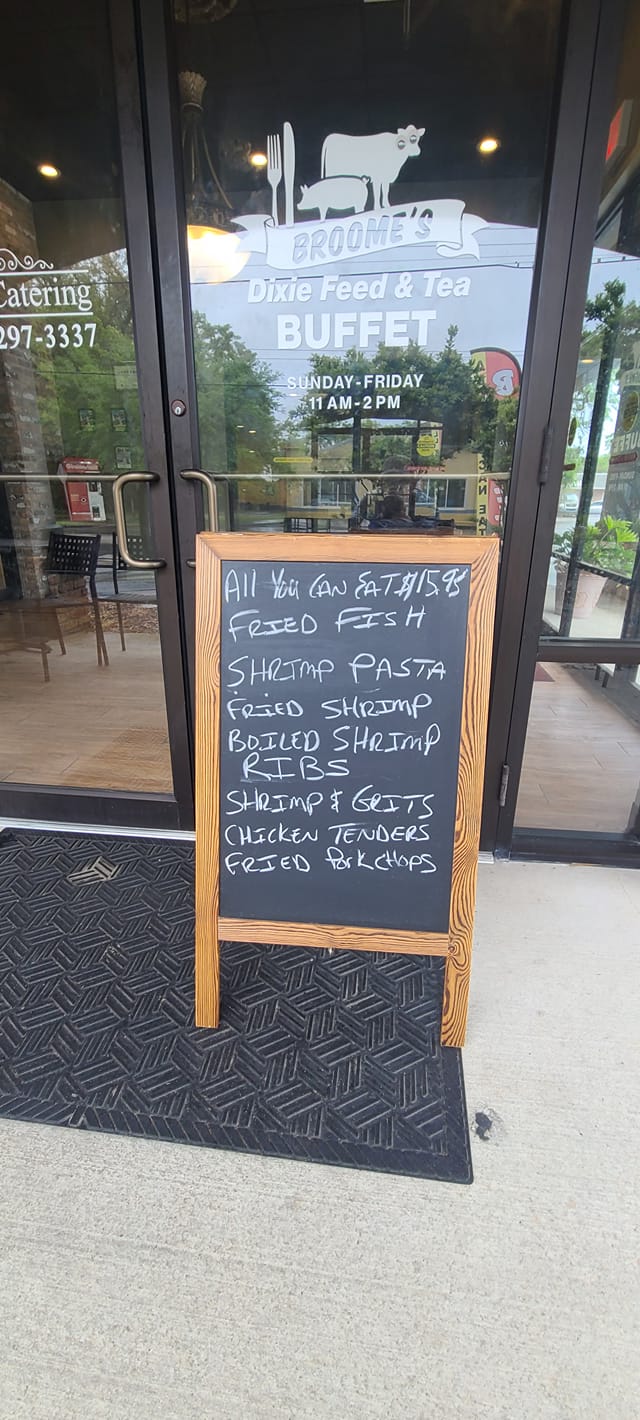 BROOME'S
Dixie Feed & Tea
BUFFET
SUNDAY-FRIDAY
11 AM-2 PM
Catering
297-3337
All YOU CAN EAT $15.95
FRIED FISH
SHRIMP PASTA
FRIED SHRIMP
BOILED SHRIMP
RIBS
SHRIMP & GRITS
CHICKEN TENDERS
FRIED PORKCHOPS
CAN EAT